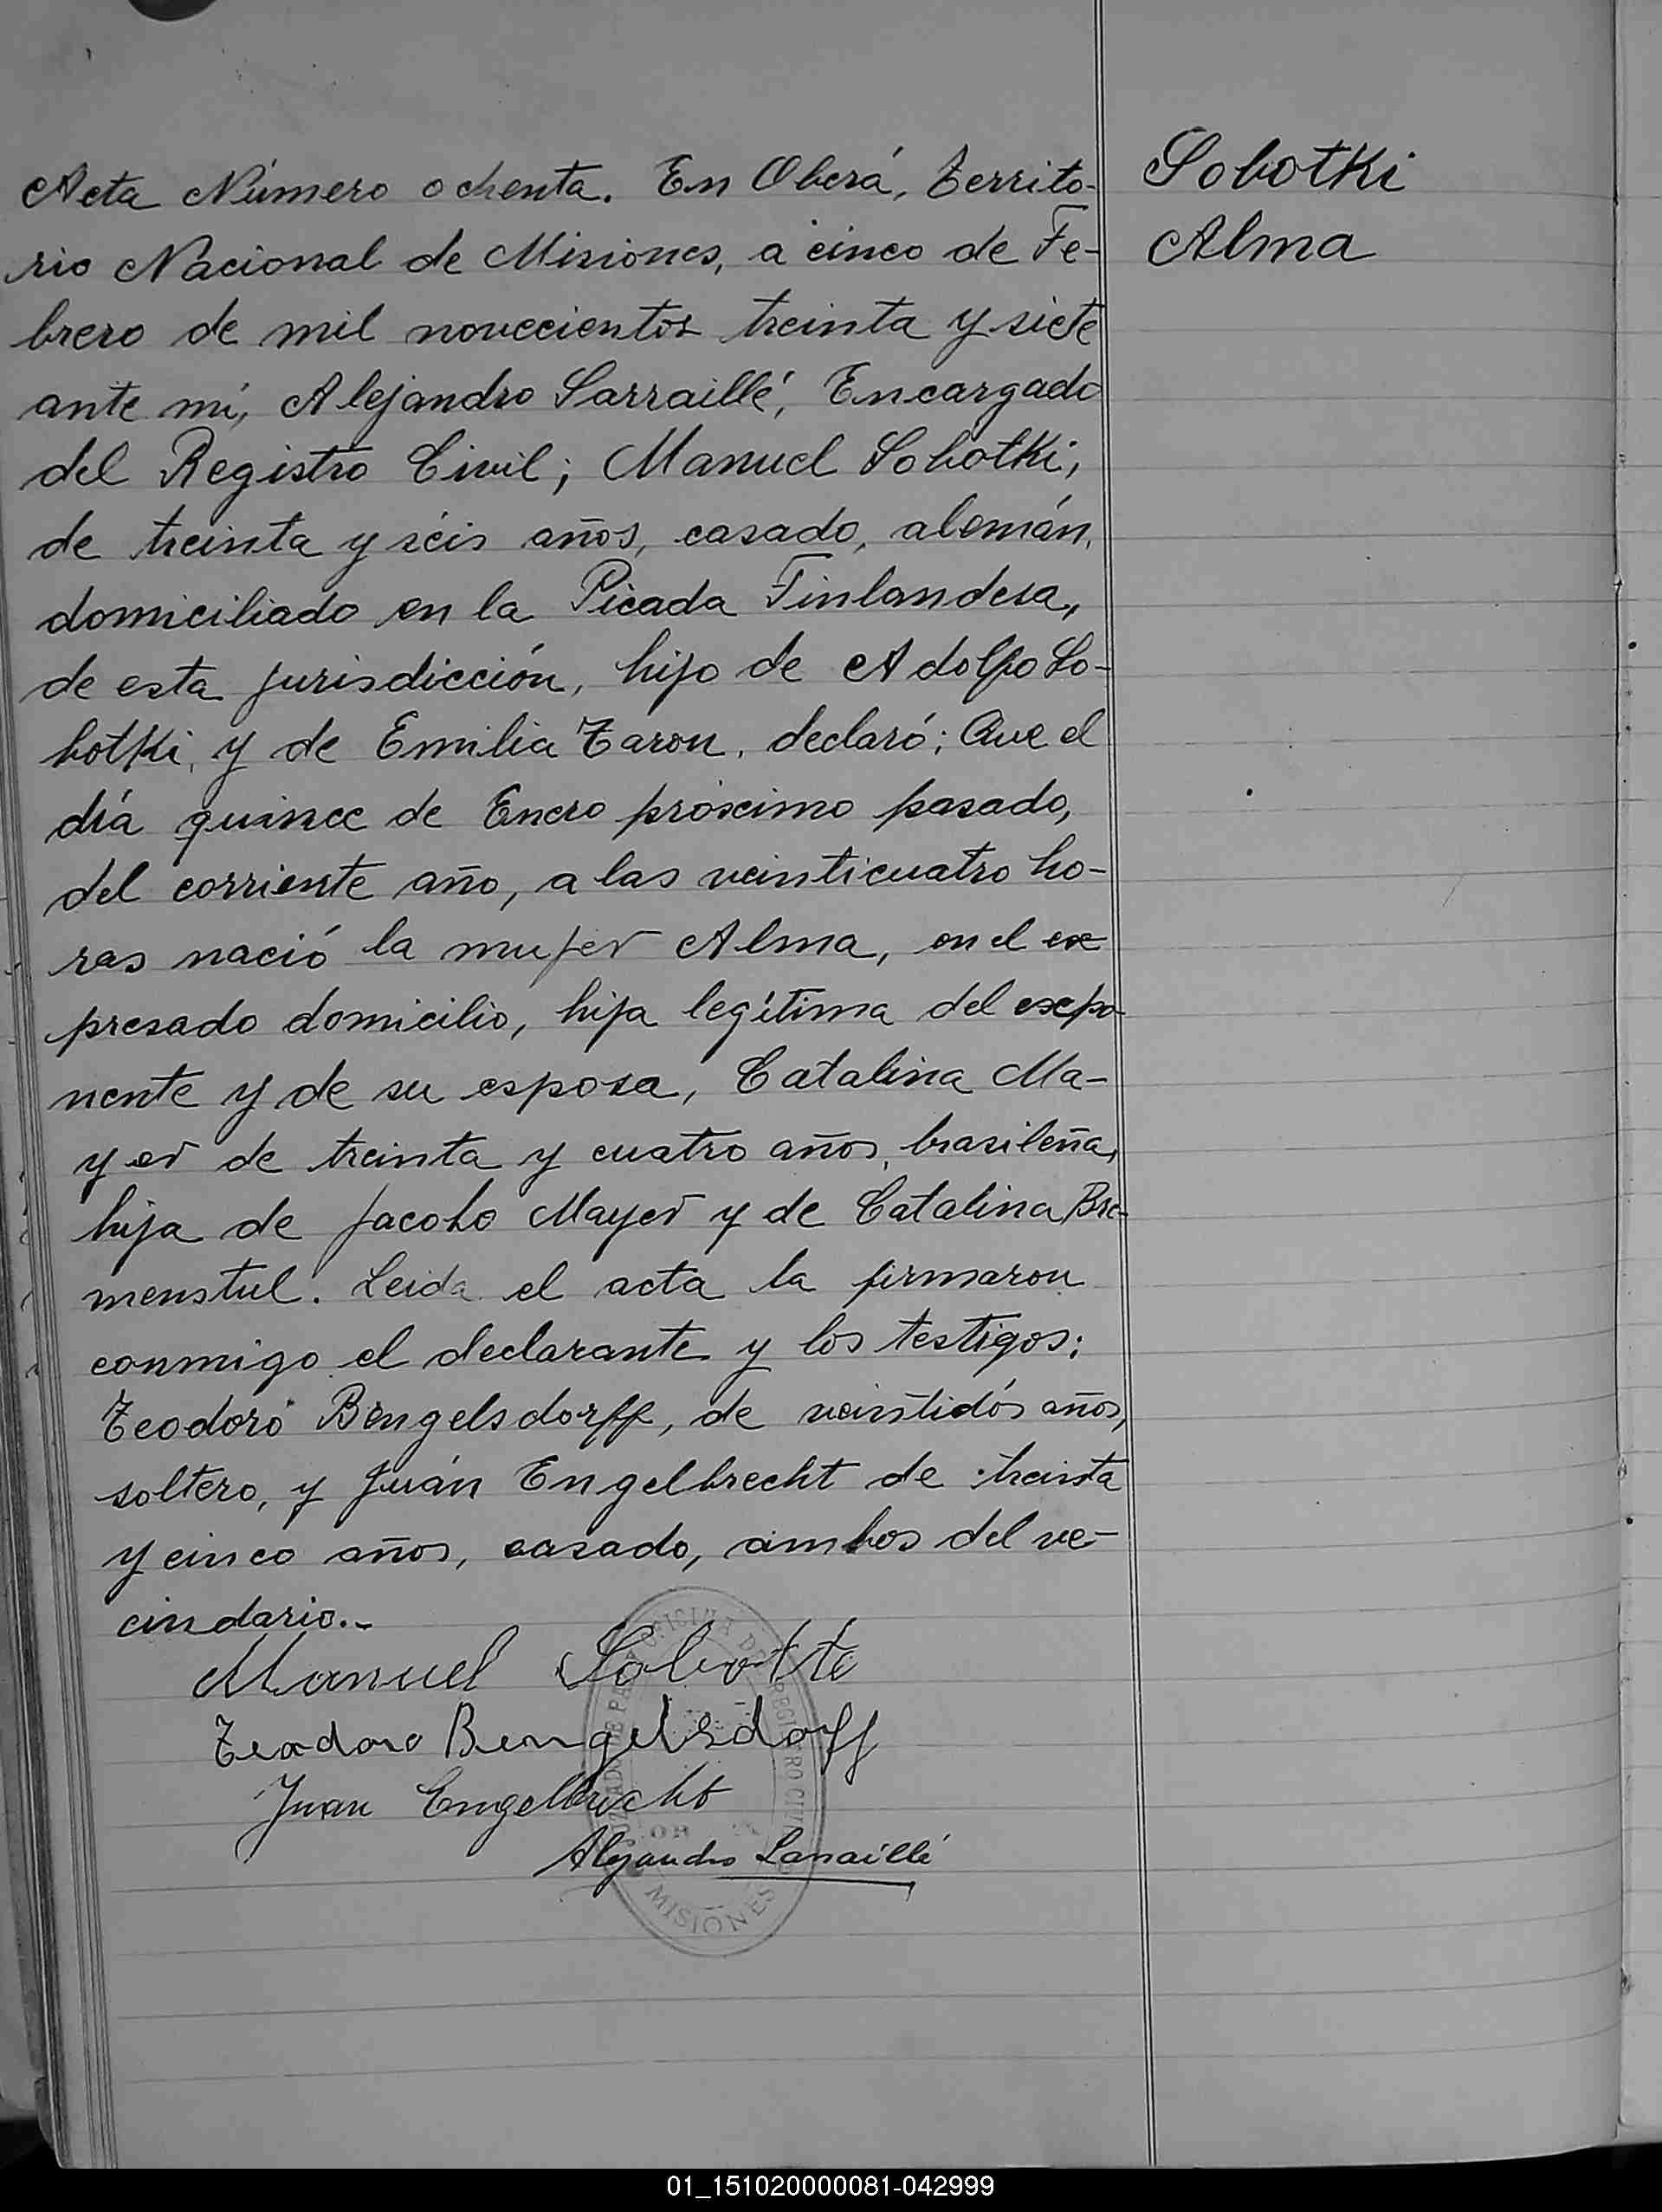 Acta Número ochenta. En Oberá, Territo-
rio Nacional de Misiones, a cinco de Fe-
brero de mil novecientos treinta y siete
ante mí, Alejandro Sarraillé, Encargado
del Registro Civil; Manuel Sobotki,
de treinta y séis años, casado, alemán,
domiciliado en la Picada Finlandesa,
de esta jurisdicción, hijo de Adolfo So-
botki, y de Emilia Taron, declaró; Que el
día quince de Enero próximo pasado,
del corriente año, a las veinticuatro ho-
ras nació la mujer Alma, en el ex
presado domicilio, hija legítima del expo-
nente y de su esposa, Catalina Ma-
yer de treinta y cuatro años, brasileña,
hija de Jacobo Mayer y de Catalina Bre-
menstul. Leida el acta la firmaron
conmigo el declarante y los testigos;
Teodoro Bengelsdorff, de veintidós años,
soltero, y Juán Engelbrecht de treinta
y cinco años, casado, ambos del ve-
cindario.-
Sobotki
Alma
Manuel
Teodoro Bengelsdorff
Juan Engelbrecht
Alejandro Sarraillé
OFICINA DEL REGISTRO CIVIL
MISIONES
01_151020000081-042999